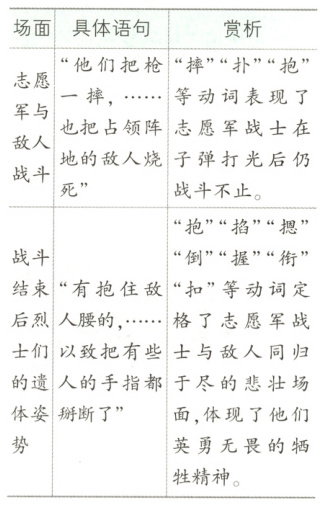 场面 具体语句 赏析
志愿军与敌人战斗
“他们把枪
一摔，……
也把占领阵
地的敌人烧
死”
“摔”“扑”“抱”
等动词表现了
志愿军战士在
子弹打光后仍
战斗不止。
战斗
结束
后烈
士们
的遗
体姿
势
“有抱住敌
人腰的，……
以致把有些
人的手指都
掰断了”
“抱”“掐”“摁”
“倒”“握”“衔”
“扣”等动词定
格了志愿军战
士与敌人同归
于尽的悲壮场
面，体现了他们
英勇无畏的牺
牲精神。